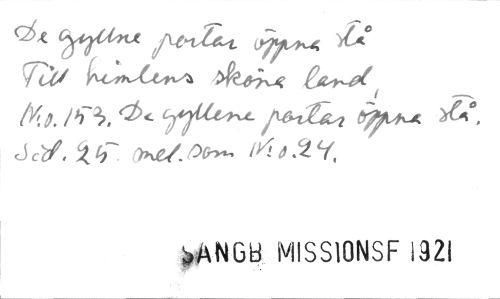 De gyllne portar öppna stå
Till himlens sköna land,
N:o.153. De gyllene portar öppna stå.
Sid. 25. mel. som N:o.24.
SANGB MISSIONSF 1921